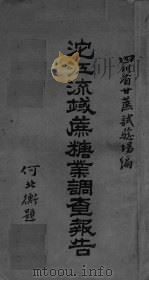 四川省甘蔗試驗場編
沱江流域蔗糖業調查報告
何北衡題
www.mtoou.info/read.shtml